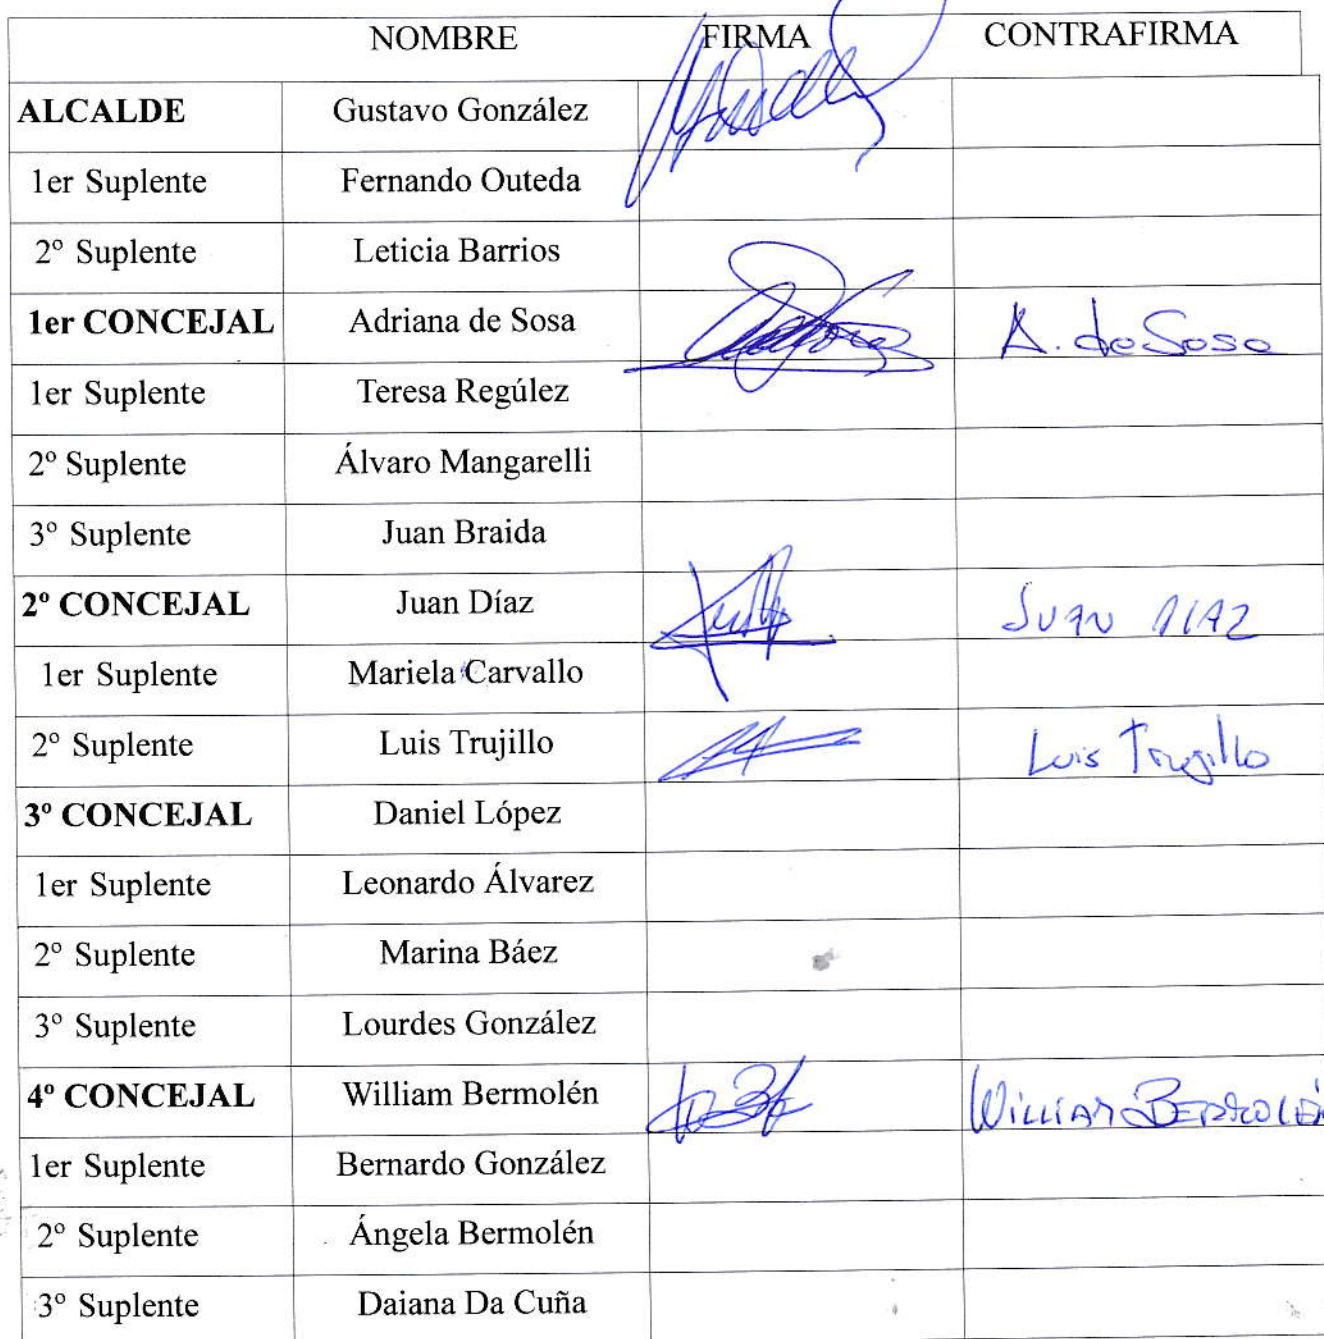 NOMBRE FIRMA CONTRAFIRMA
ALCALDE Gustavo González
1er Suplente Fernando Outeda
2º Suplente Leticia Barrios
1er CONCEJAL Adriana de Sosa A. de Sosa
1er Suplente Teresa Regúlez
2º Suplente Álvaro Mangarelli
3º Suplente Juan Braida
2º CONCEJAL Juan Díaz JUAN DIAZ
1er Suplente Mariela Carvallo
2º Suplente Luis Trujillo Luis Trujillo
3º CONCEJAL Daniel López
1er Suplente Leonardo Álvarez
2º Suplente Marina Báez
3º Suplente Lourdes González
4º CONCEJAL William Bermolén WILLIAM BERMOLÉN
1er Suplente Bernardo González
2º Suplente Ángela Bermolén
3º Suplente Daiana Da Cuña